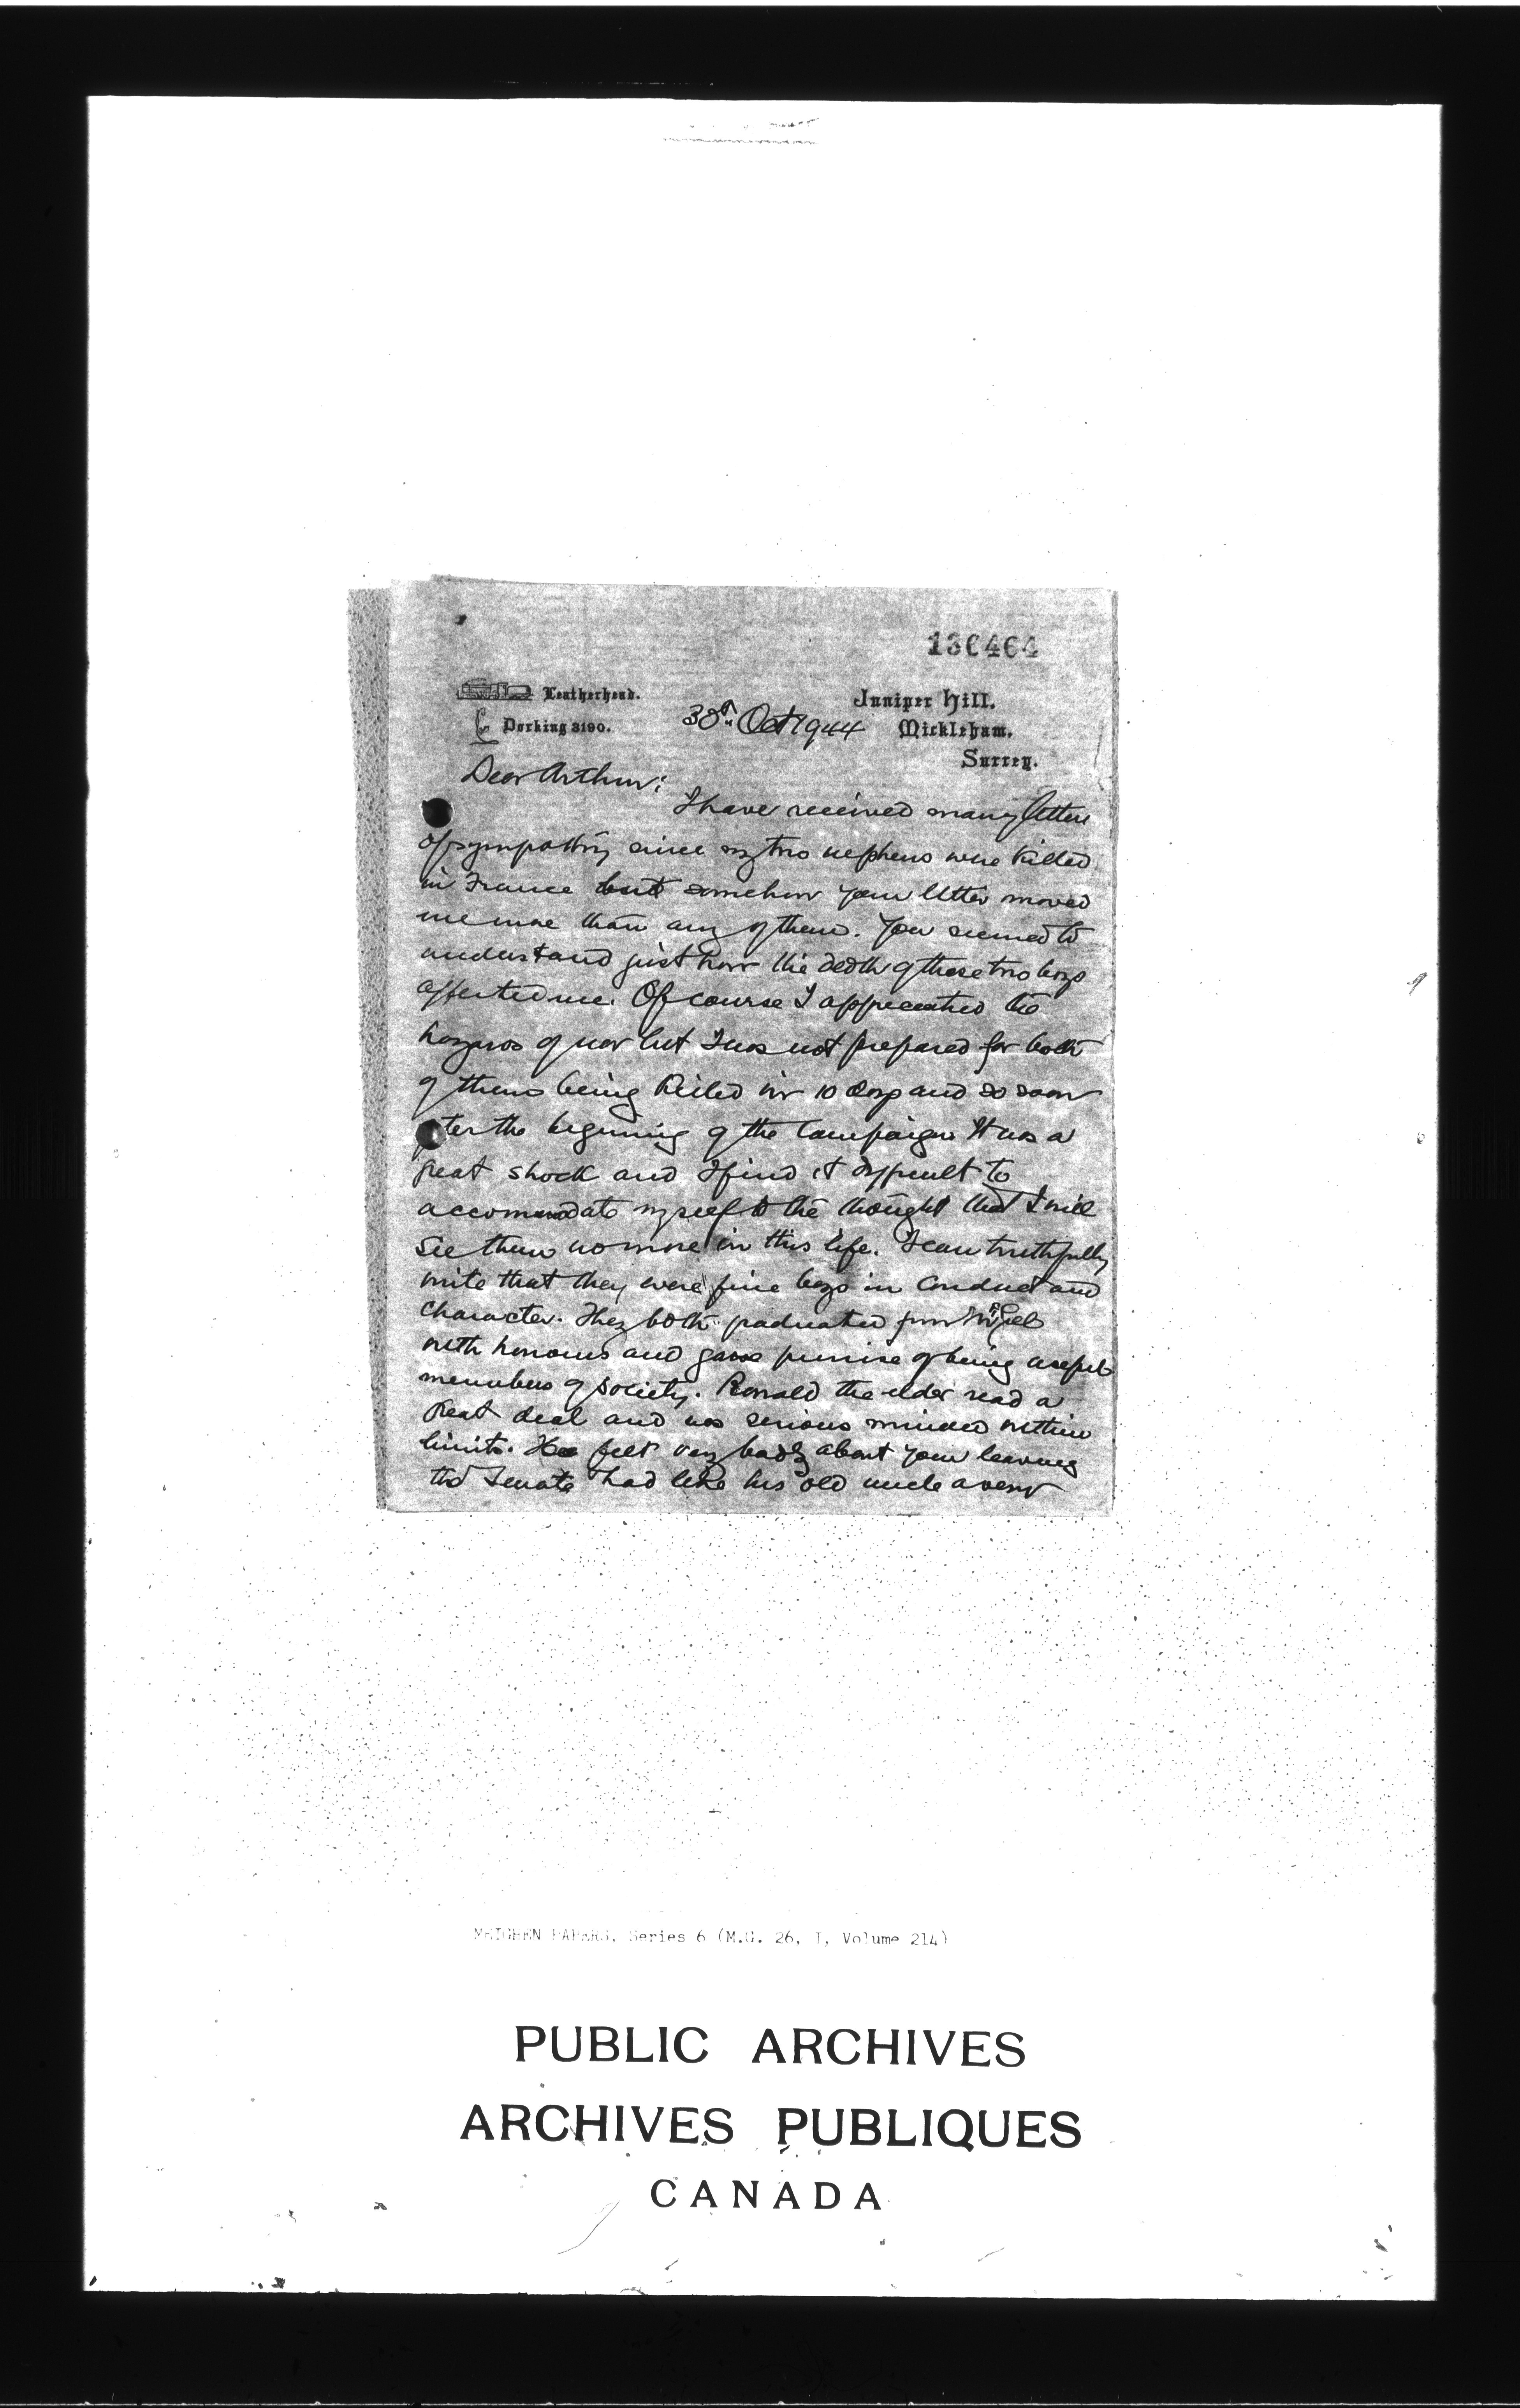 136464
Leatherhead.
Juniper Hill.
Dorking 3190.
30th Oct 1944
Mickleham.
Surrey.
Dear Arthur:
I have received many letters
of sympathy since my two nephews were killed
in France but somehow your letter moved
me more than any of them. You seemed to
understand just how the death of these two boys
affected me. Of course I appreciated the
hazards of war but I was not prepared for both
of them being killed in 10 days and so soon
after the beginning of the Campaign. It was a
great shock and I find it difficult to
accommodate myself to the thought that I will
see them no more in this life. I can truthfully
write that they were fine boys in conduct and
character. They both graduated from McGill
with honours and gave promise of being useful
members of society. Ronald the elder read a
great deal and was serious minded within
limits. He felt very badly about your leaving
the Senate had like his old uncle a very
MEIGHEN PAPERS, Series 6 (M.G. 26, I, Volume 214)
PUBLIC ARCHIVES
ARCHIVES PUBLIQUES
CANADA